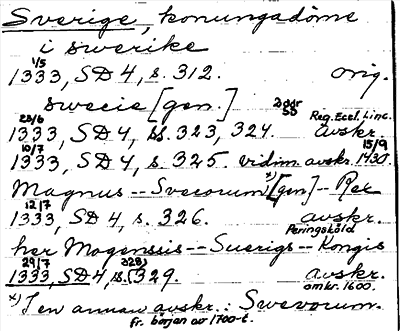 Sverige, konungadöme
i swerike
1/5
1333, SD 4, s. 312. orig.
swecie [gen.]
23/6 2 ggr så Reg. Eccl. Linc.
1333, SD 4, ss. 323, 324. avskr.
10/7 15/9
1333, SD 4, s. 325. vidim. avskr. 1430.
Magnus -- Sveorum x) [gen] -- Rex
12/7
1333, SD 4, s. 326. avskr.
Peringsköld
her Mogenssis -- Suerigs -- Kongis
29/7 328)
1333, SD 4, s. (329. avskr.
omkr. 1600.
x) I en annan avskr.: Swevorum.
fr. början av 1700-t.